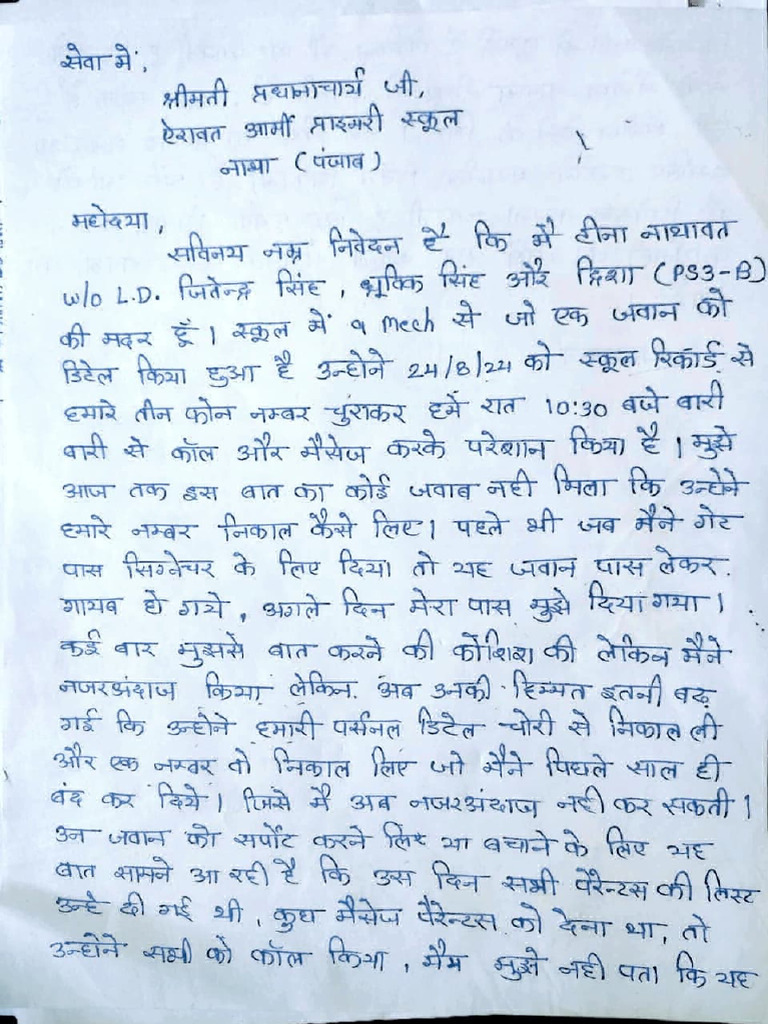 सेवा में,
श्रीमती प्रधानाचार्य जी,
ऐरावत आर्मी प्राइमरी स्कूल
नाभा (पंजाब)
महोदया,
सविनय नम्र निवेदन है कि मैं टीना नाथावत
W/O L.D. जितेन्द्र सिंह, सिंह और (PS3-B)
की मदर हूँ। स्कूल में 9 Mech से जो एक जवान को
डिटेल किया हुआ है उन्होंने 24/8/24 को स्कूल रिकॉर्ड से
हमारे तीन फोन नम्बर चुराकर हमें रात 10:30 बजे बारी
बारी से कॉल और मैसेज करके परेशान किया है। मुझे
आज तक इस बात का कोई जवाब नहीं मिला कि उन्होंने
हमारे नम्बर निकाल कैसे लिए। पहले भी जब मैंने गेट
पास सिग्नेचर के लिए दिया तो यह जवान पास लेकर
गायब हो गये, अगले दिन मेरा पास मुझे दिया गया।
कई बार मुझसे बात करने की कोशिश की लेकिन मैंने
नजरअंदाज किया लेकिन अब उनकी हिम्मत इतनी बढ़
गई कि उन्होंने हमारी पर्सनल डिटेल चोरी से निकाल ली
और एक नम्बर वो निकाल लिए जो मैंने पिछले साल ही
बंद कर दिये। जिसे मैं अब नजरअंदाज नही कर सकती।
उन जवान को सपोंट करने लिए या बचाने के लिए यह
बात सामने आ रही है कि उस दिन सभी पेरेन्टस की लिस्ट
उन्हे दी गई थी, कुछ मैसेज पैरेन्टस को देना था, तो
उन्होंने सभी को कॉल किया, मैम मुझे नही पता कि यह